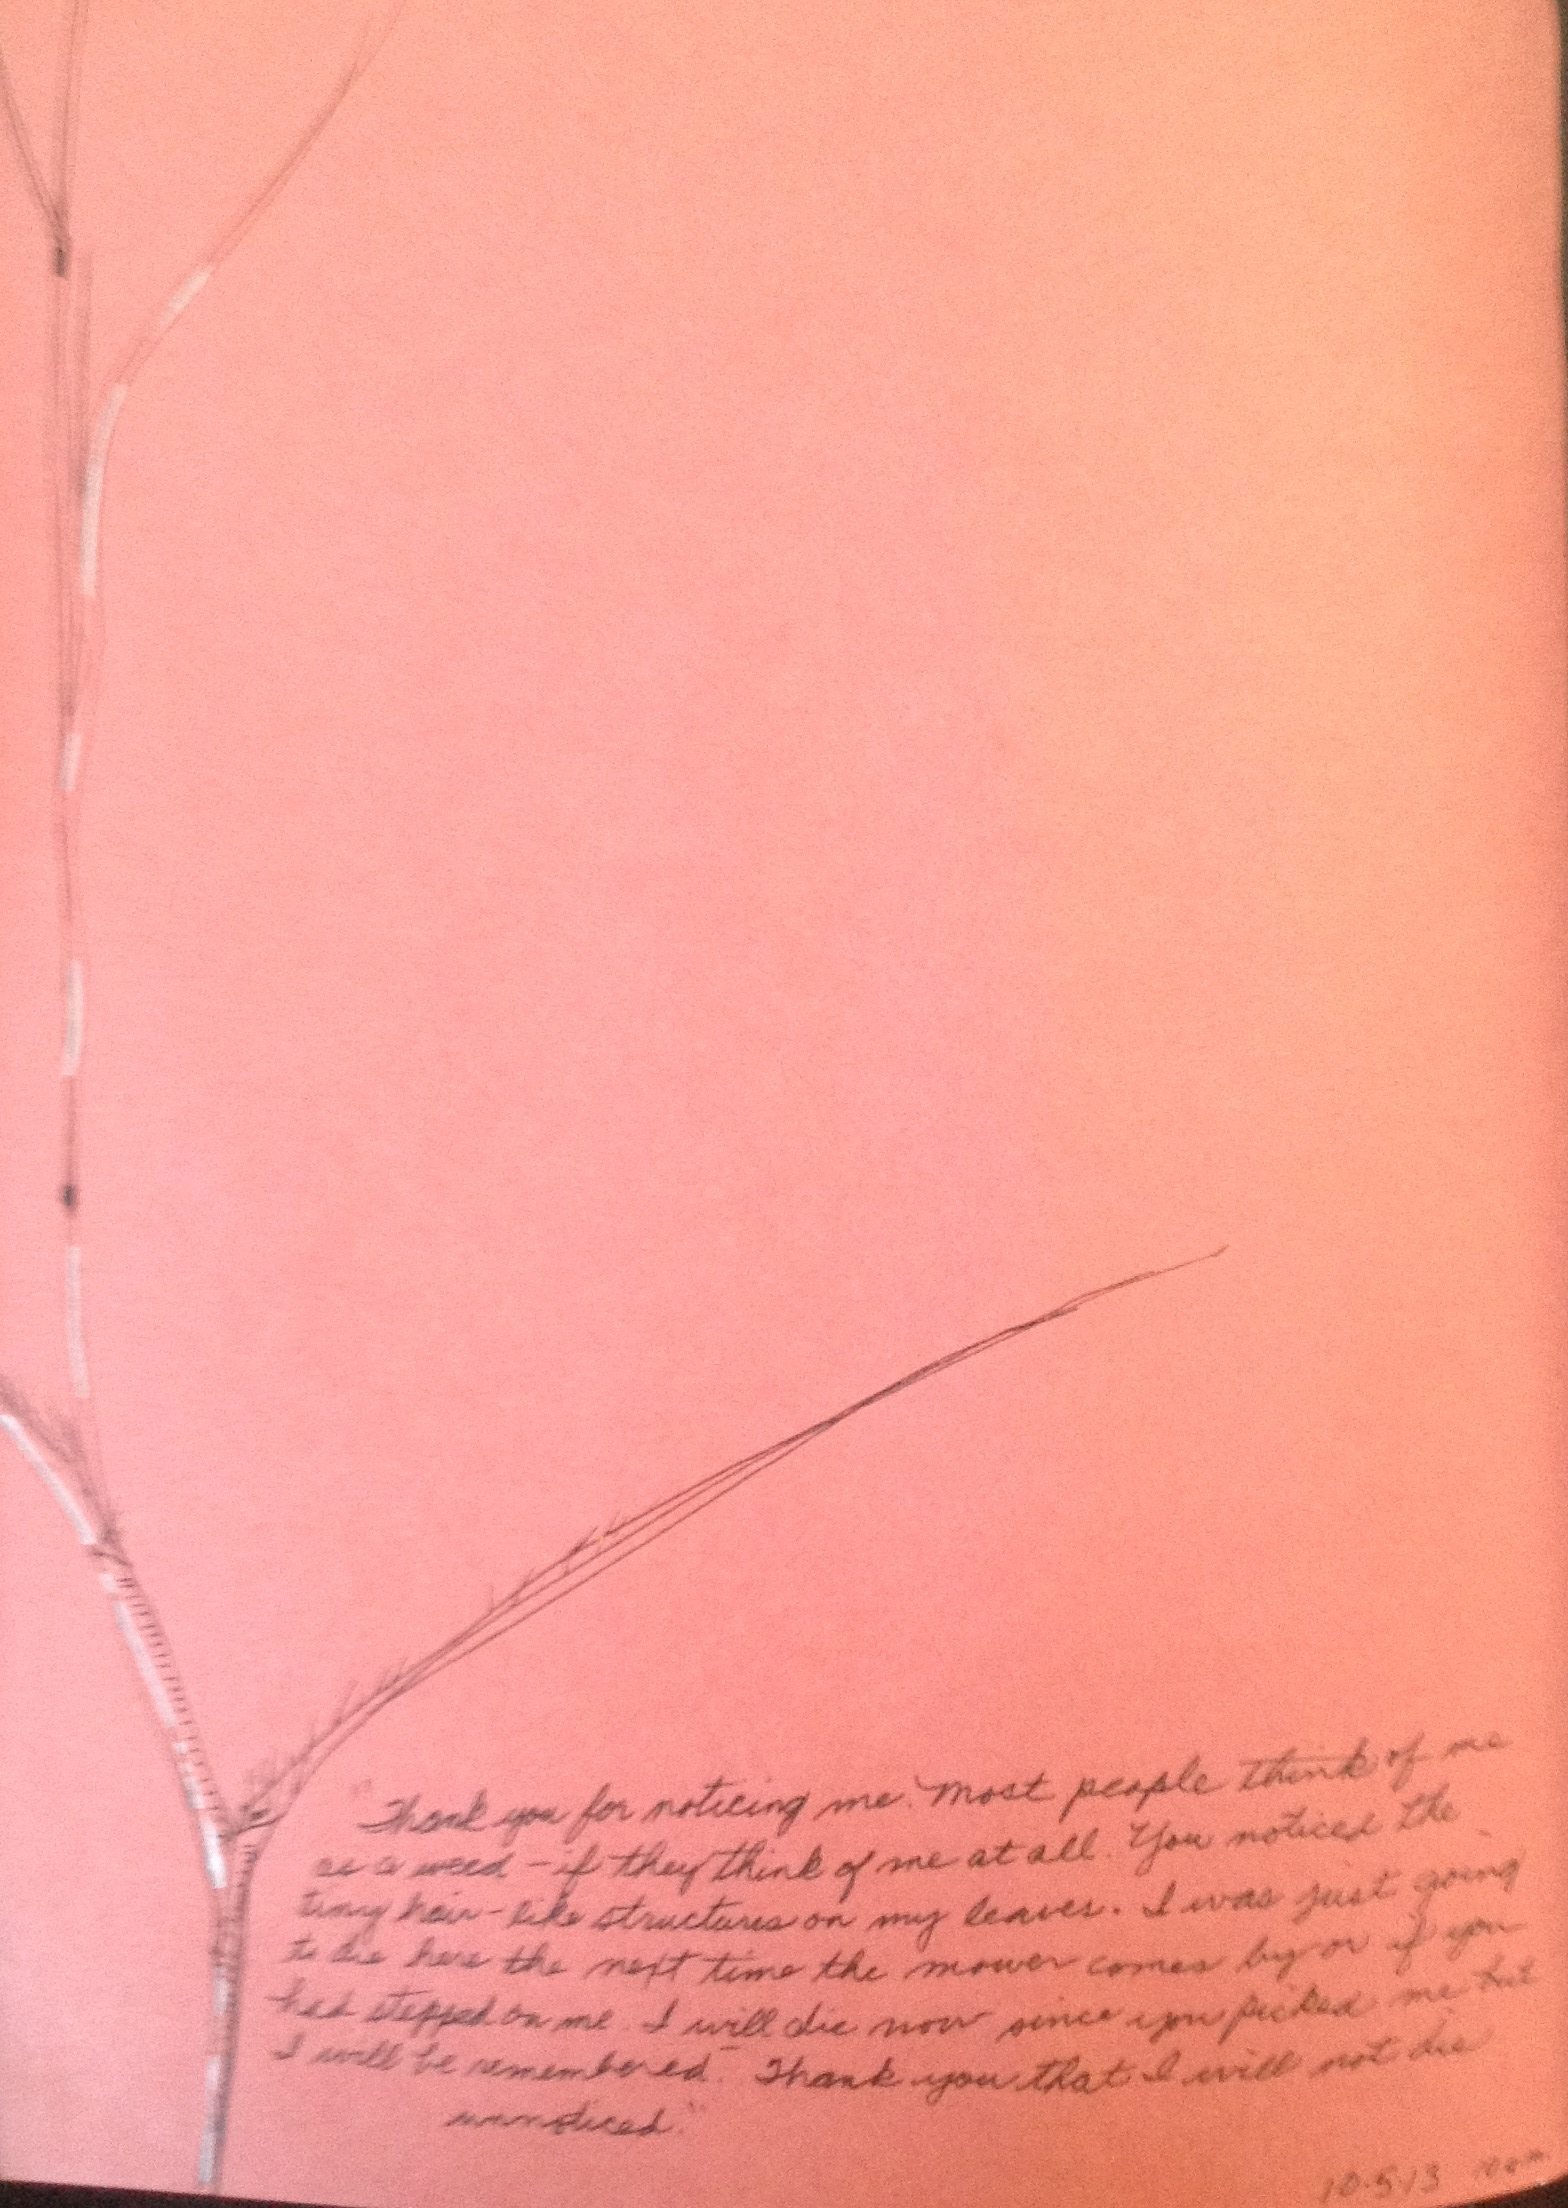 "Thank you for noticing me. Most people think of me
as a weed - if they think of me at all. You noticed the
tiny hair-like structures on my leaves. I was just going
to die here the next time the mower comes by or if you
had stepped on me. I will die now since you picked me but
I will be remembered. Thank you that I will not die
unnoticed."
10.5.13